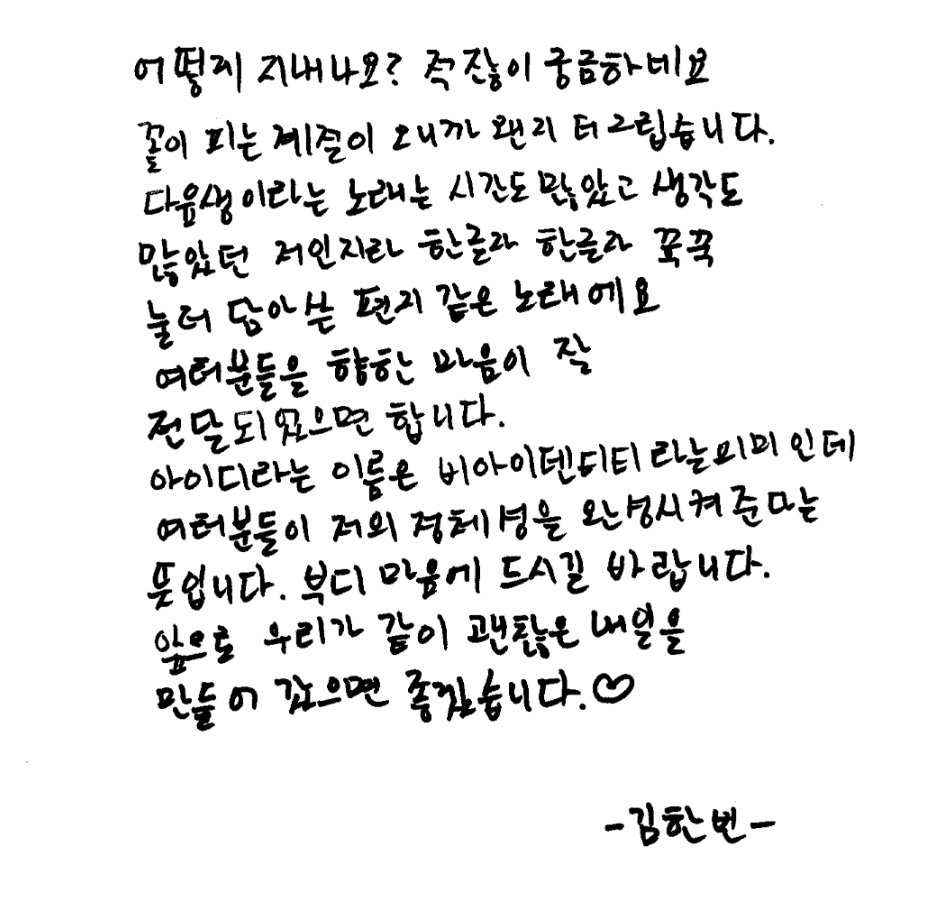 어떻게 지내나요? 적잖이 궁금하네요
꽃이 피는 계절이 오니까 왠지 더 그립습니다.
다음생이라는 노래는 시간도 많았고 생각도
많았던 저인지라 한글자 한글자 꾹꾹
눌러 담아 쓴 편지 같은 노래에요
여러분들을 향한 마음이 잘
전달되었으면 합니다.
아이디라는 이름은 비아이덴티티 라는 의미 인데
여러분들이 저의 정체성을 완성시켜 준다는
뜻입니다. 부디 마음에 드시길 바랍니다.
앞으로 우리가 같이 괜찮은 내일을
만들어 갔으면 좋겠습니다.♡
-김한빈-